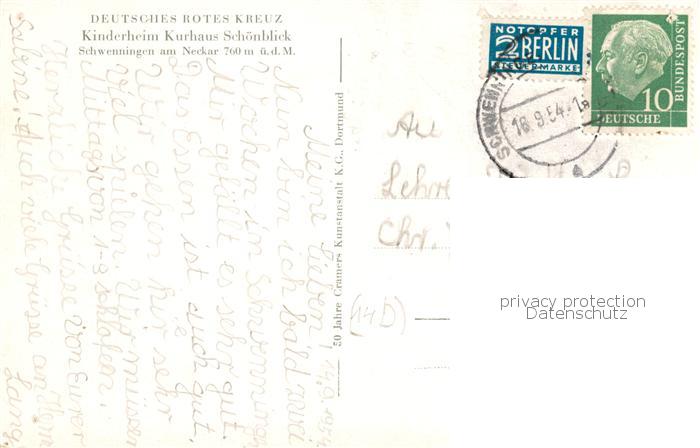 DEUTSCHES ROTES KREUZ
Kinderheim Kurhaus Schönblick
Schwenningen am Neckar 760 m ü. d. M.
14.9.1954
Meine Lieben!
Nun bin ich bald zwei
Wochen in Schwenningen
Mir gefällt es sehr gut.
Das Essen ist auch gut.
Wir gehen hir sehr
viel spielen. Wir müssen
Mittags von 1-3 schlafen.
Herzliche Grüsse von Eurer
Sabine! Auch viele Grüsse an
50 Jahre Cramers Kunstanstalt K.G., Dortmund
NOTOPFER
2 BERLIN
STEUERMARKE
DEUTSCHE
BUNDESPOST
10
SCHWENN
18.9.54.
An
Lehre
Chr.
(14b)
privacy protection
Datenschutz